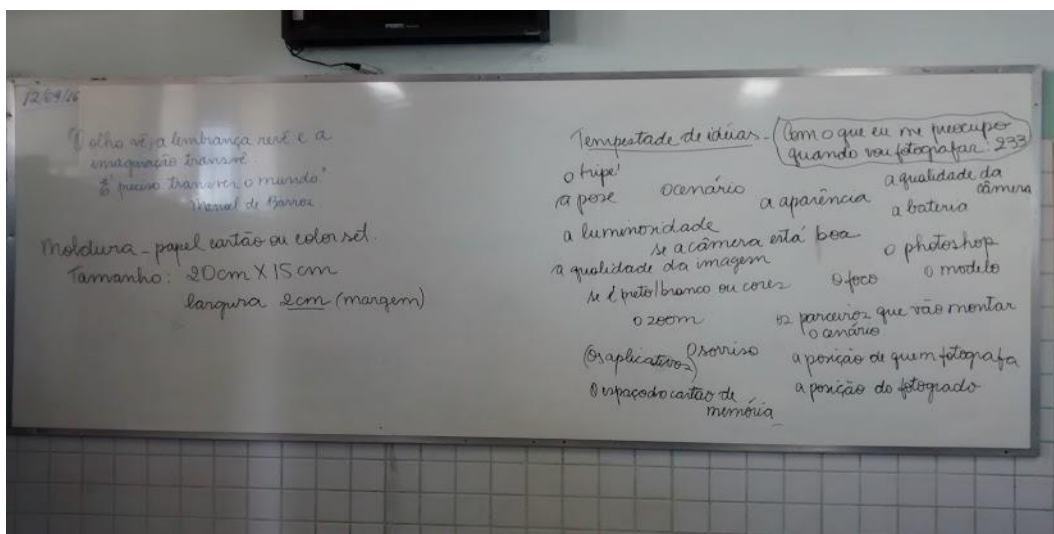 12/09/16
"O olho vê, a lembrança revê e a
imaginação transvê.
É preciso transver o mundo."
Manoel de Barros
Moldura - papel cartão ou color set.
Tamanho: 20cm X 15cm
largura 2cm (margem)
Tempestade de idéias - Com o que eu me preocupo
quando vou fotografar: 233
o tripé
a pose
o cenário
a aparência
a qualidade da
câmera
a bateria
a luminosidade
se a câmera está boa
o photoshop
a qualidade da imagem
o modelo
se é preto/branco ou cores
o foco
o zoom
os parceiros que vão montar
o cenário
(Os aplicativos)
O sorriso
a posição de quem fotografa
O espaço do cartão de
memória
a posição do fotogrado